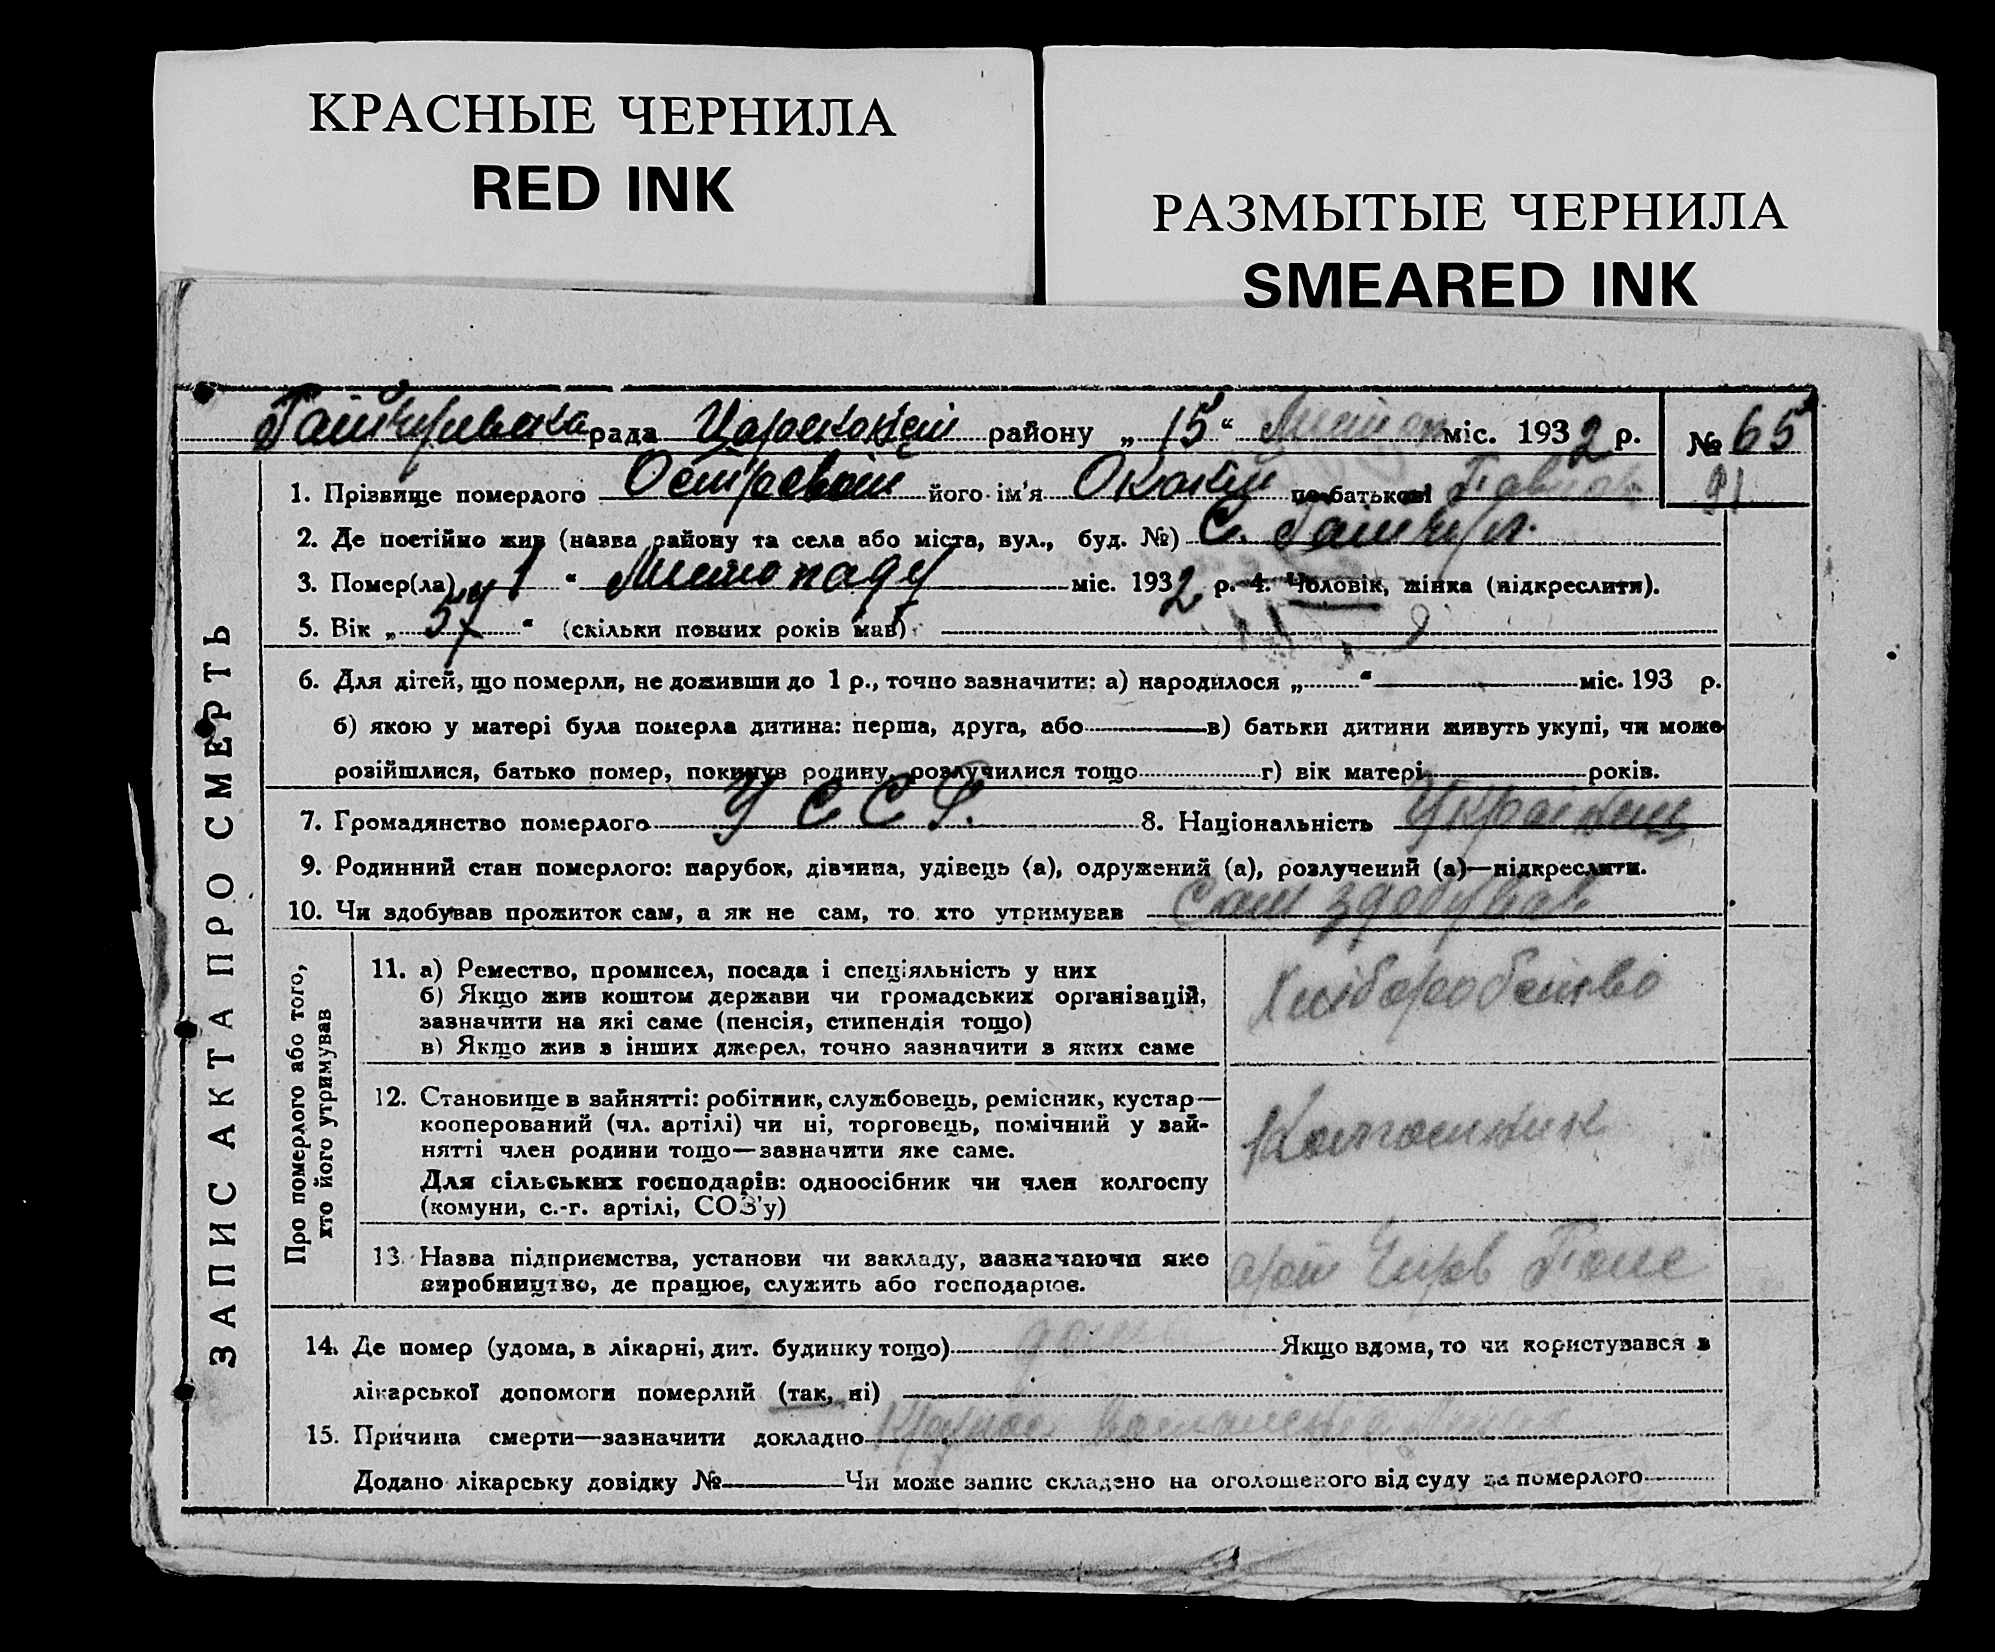 КРАСНЫЕ ЧЕРНИЛА
RED INK
РАЗМЫТЫЕ ЧЕРНИЛА
SMEARED INK
рада району „15“ міс. 1932 р. № 65
1. Прізвище померлого його ім’я по батькові 91
2. Де постійно жив (назва району та села або міста, вул., буд. №) С.
3. Помер(ла) „ 1 “ Листопаду міс. 1932 р. 4. Чоловік, жінка (підкреслити).
5. Вік „ 57 “ (скільки повних років мав)
6. Для дітей, що померли, не доживши до 1 р., точно зазначити: а) народилося „ “ міс. 193 р.
б) якою у матері була померла дитина: перша, друга, або в) батьки дитини живуть укупі, чи може
розійшлися, батько помер, покинув родину, розлучилися тощо г) вік матері років.
7. Громадянство померлого У С С Р. 8. Національність Українець
9. Родинний стан померлого: парубок, дівчина, удівець (а), одружений (а), розлучений (а)—підкреслити.
10. Чи здобував прожиток сам, а як не сам, то хто утримував Сам здобував
ЗАПИС АКТА ПРО СМЕРТЬ
Про померлого або того,
хто його утримував
11. а) Ремество, промисел, посада і спеціяльність у них
б) Якщо жив коштом держави чи громадських організацій,
зазначити на які саме (пенсія, стипендія тощо)
в) Якщо жив з інших джерел, точно зазначити з яких саме
Хліборобство
12. Становище в зайнятті: робітник, службовець, ремісник, кустар—
кооперований (чл. артілі) чи ні, торговець, помічний у зай-
нятті член родини тощо—зазначити яке саме.
Для сільських господарів: одноосібник чи член колгоспу
(комуни, с.-г. артілі, СОЗ’у)
Колгоспник
13. Назва підприємства, установи чи закладу, зазначаючи яке
виробництво, де працює, служить або господарює.
14. Де помер (удома, в лікарні, дит. будинку тощо) Якщо вдома, то чи користувався з
лікарської допомоги померлий (так, ні)
15. Причина смерти—зазначити докладно
Додано лікарську довідку № Чи може запис складено на оголошеного від суду за померлого